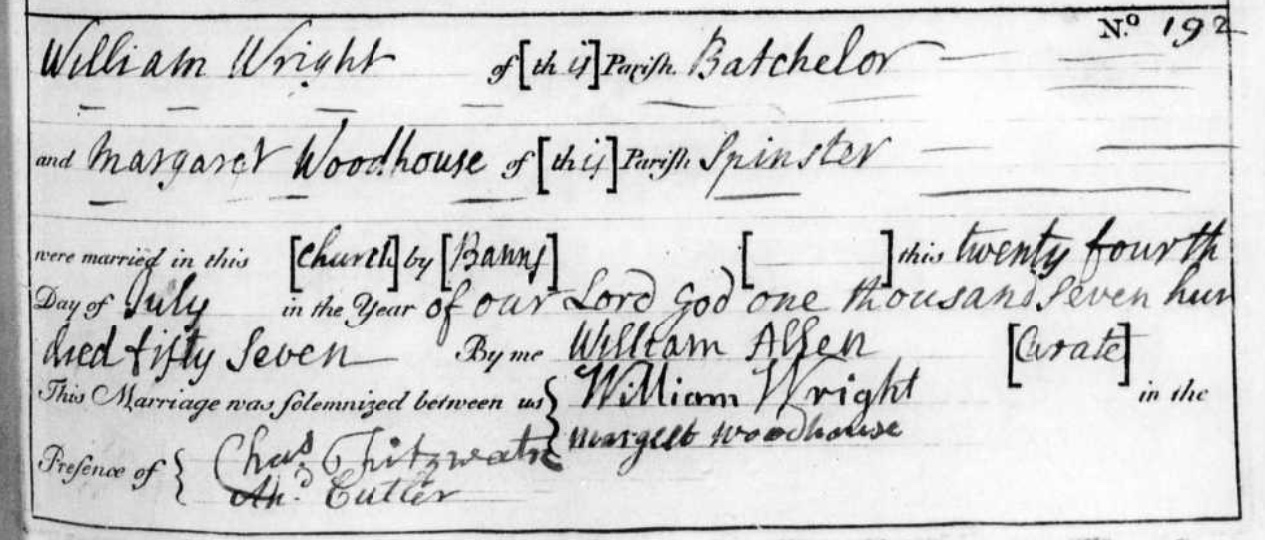 No 192
William Wright of [this] Parish Batchelor
and Margaret Woodhouse of [this] Parish Spinster
were married in this [Church] by [Banns] [ ] this twenty fourth
Day of July in the Year of our Lord God one thousand Seven hun
dred & fifty Seven By me William Allen [Curate]
This Marriage was solemnized between us { William Wright in the
margett woodhouse
Presence of { Chas.
Cutler